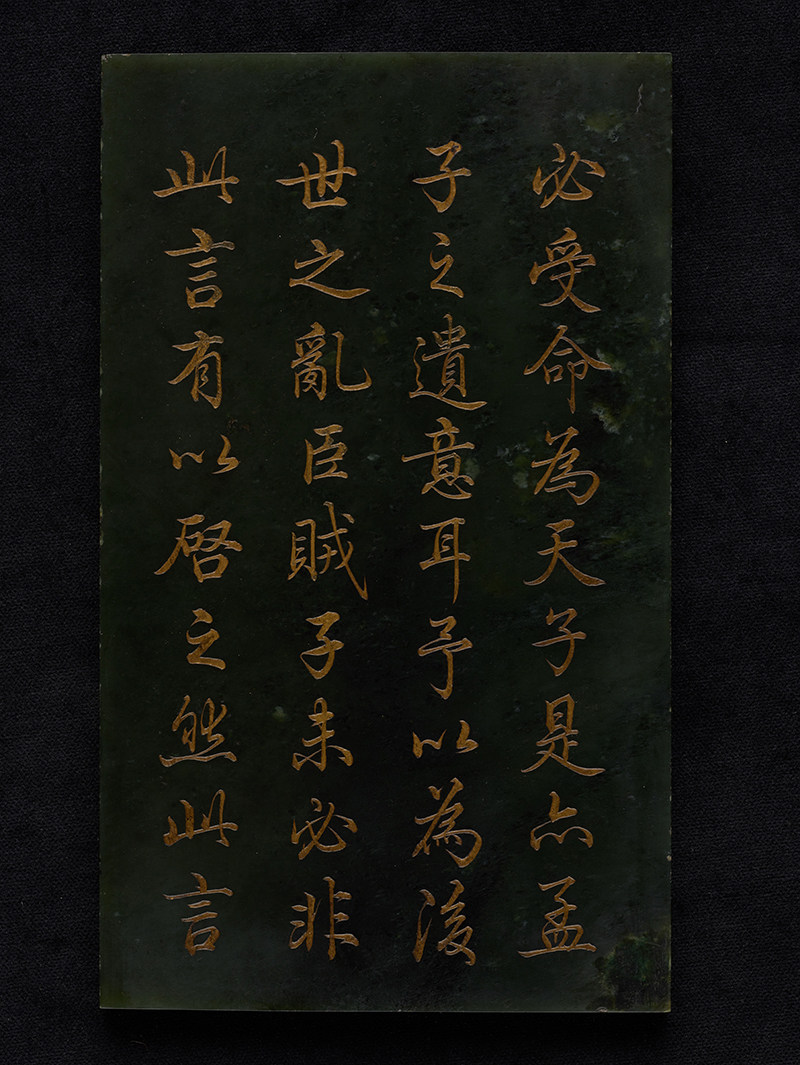 必受命為天子是亦孟
子之遺意耳予以為後
世之亂臣賊子未必非
此言有以啓之然此言